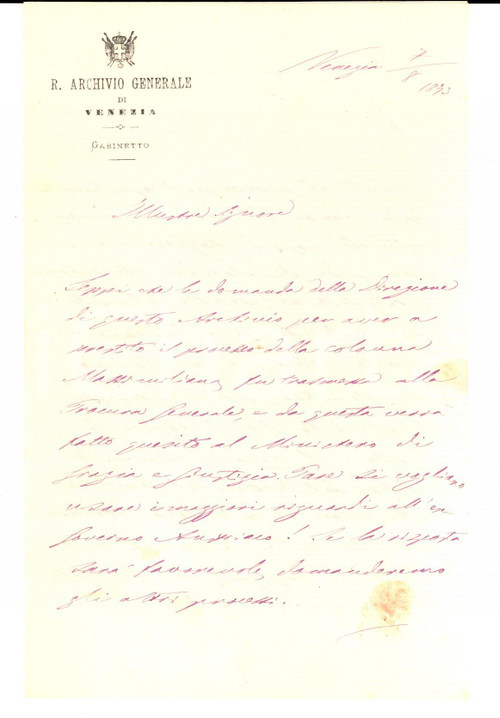 R. ARCHIVIO GENERALE
DI
VENEZIA
GABINETTO
Venezia 7/8 1893
Illustre Signore
Seppi che la domanda della Direzione
di questo Archivio per aver a
prestito il processo della colonna
Massimiliana, fu trasmessa alla
Procura Generale, e da questa verrà
fatto quesito al Ministero di
Grazia e Giustizia. Pare si vogliano
usare i maggiori riguardi all'ex
Governo Austriaco! Se la risposta
sarà favorevole, domanderemo
gli altri processi.